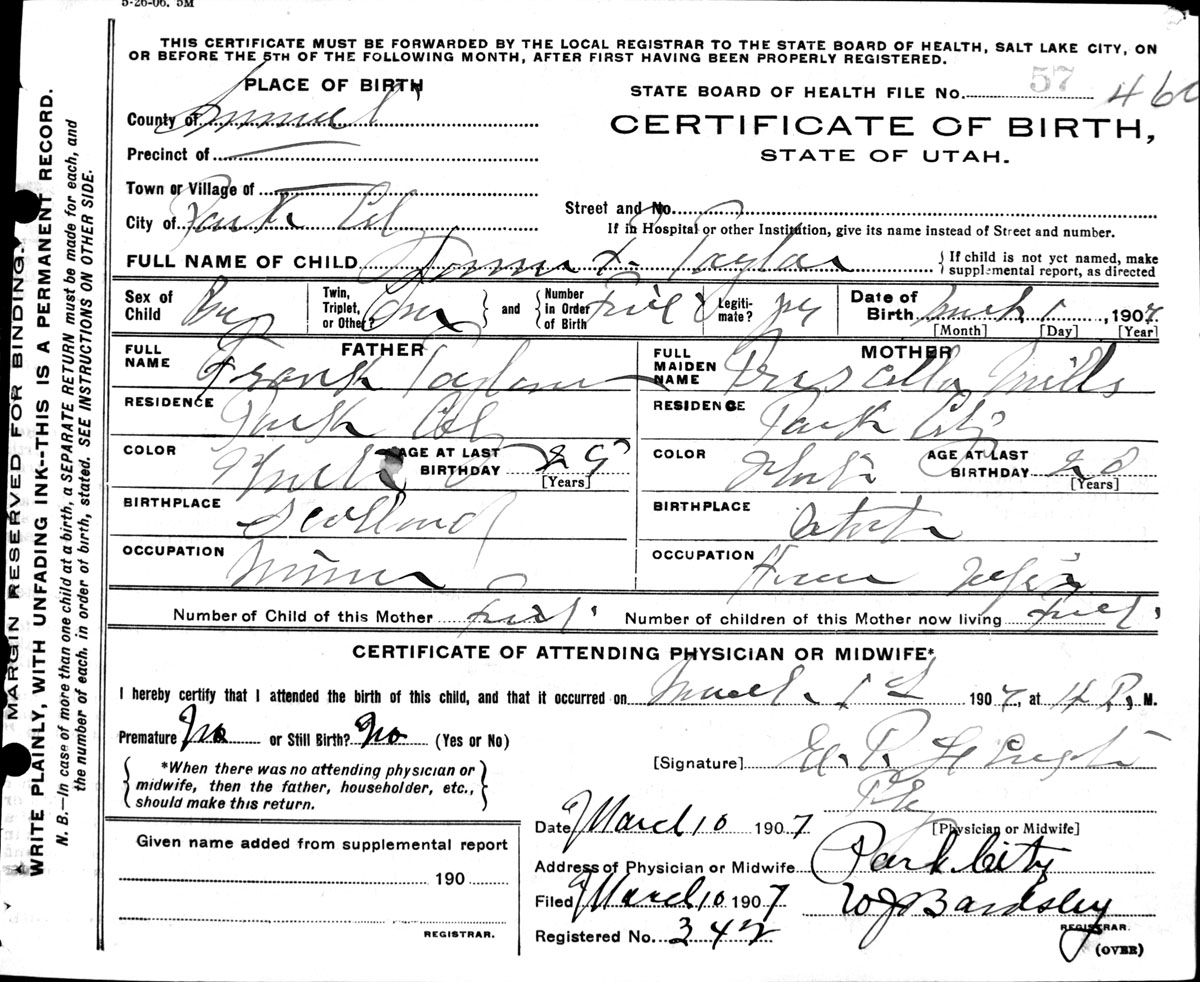 5-26-06. 5M
THIS CERTIFICATE MUST BE FORWARDED BY THE LOCAL REGISTRAR TO THE STATE BOARD OF HEALTH, SALT LAKE CITY, ON
OR BEFORE THE 5TH OF THE FOLLOWING MONTH, AFTER FIRST HAVING BEEN PROPERLY REGISTERED.
PLACE OF BIRTH
STATE BOARD OF HEALTH FILE No. 57
County of Summit
CERTIFICATE OF BIRTH,
Precinct of
STATE OF UTAH.
Town or Village of
City of Park City
Street and No.
If in Hospital or other Institution, give its name instead of Street and number.
FULL NAME OF CHILD Taylor
{ If child is not yet named, make
supplemental report, as directed
Sex of Child Boy
Twin, Triplet, or Other?
and
Number in Order of Birth First
Legiti-mate? yes
Date of Birth March 1, 1907
[Month] [Day] [Year]
FATHER
FULL NAME Frank Taylor
RESIDENCE Park City
COLOR White
AGE AT LAST BIRTHDAY 29
[Years]
BIRTHPLACE Scotland
OCCUPATION Miner
MOTHER
FULL MAIDEN NAME Priscilla Mills
RESIDENCE Park City
COLOR White
AGE AT LAST BIRTHDAY 28
[Years]
BIRTHPLACE
OCCUPATION House Wife
Number of Child of this Mother First
Number of children of this Mother now living First
CERTIFICATE OF ATTENDING PHYSICIAN OR MIDWIFE*
I hereby certify that I attended the birth of this child, and that it occurred on March 1st 1907, at 4 P. M.
Premature No or Still Birth? No (Yes or No)
*When there was no attending physician or
midwife, then the father, householder, etc.,
should make this return.
[Signature]
[Physician or Midwife]
Date March 10 1907
Address of Physician or Midwife Park City
Filed March 10 1907 W J Bardsley
REGISTRAR.
Registered No. 342
(OVER)
Given name added from supplemental report
190
REGISTRAR.
MARGIN RESERVED FOR BINDING.
WRITE PLAINLY, WITH UNFADING INK--THIS IS A PERMANENT RECORD.
N. B.—In case of more than one child at a birth, a SEPARATE RETURN must be made for each, and
the number of each, in order of birth, stated. SEE INSTRUCTIONS ON OTHER SIDE.